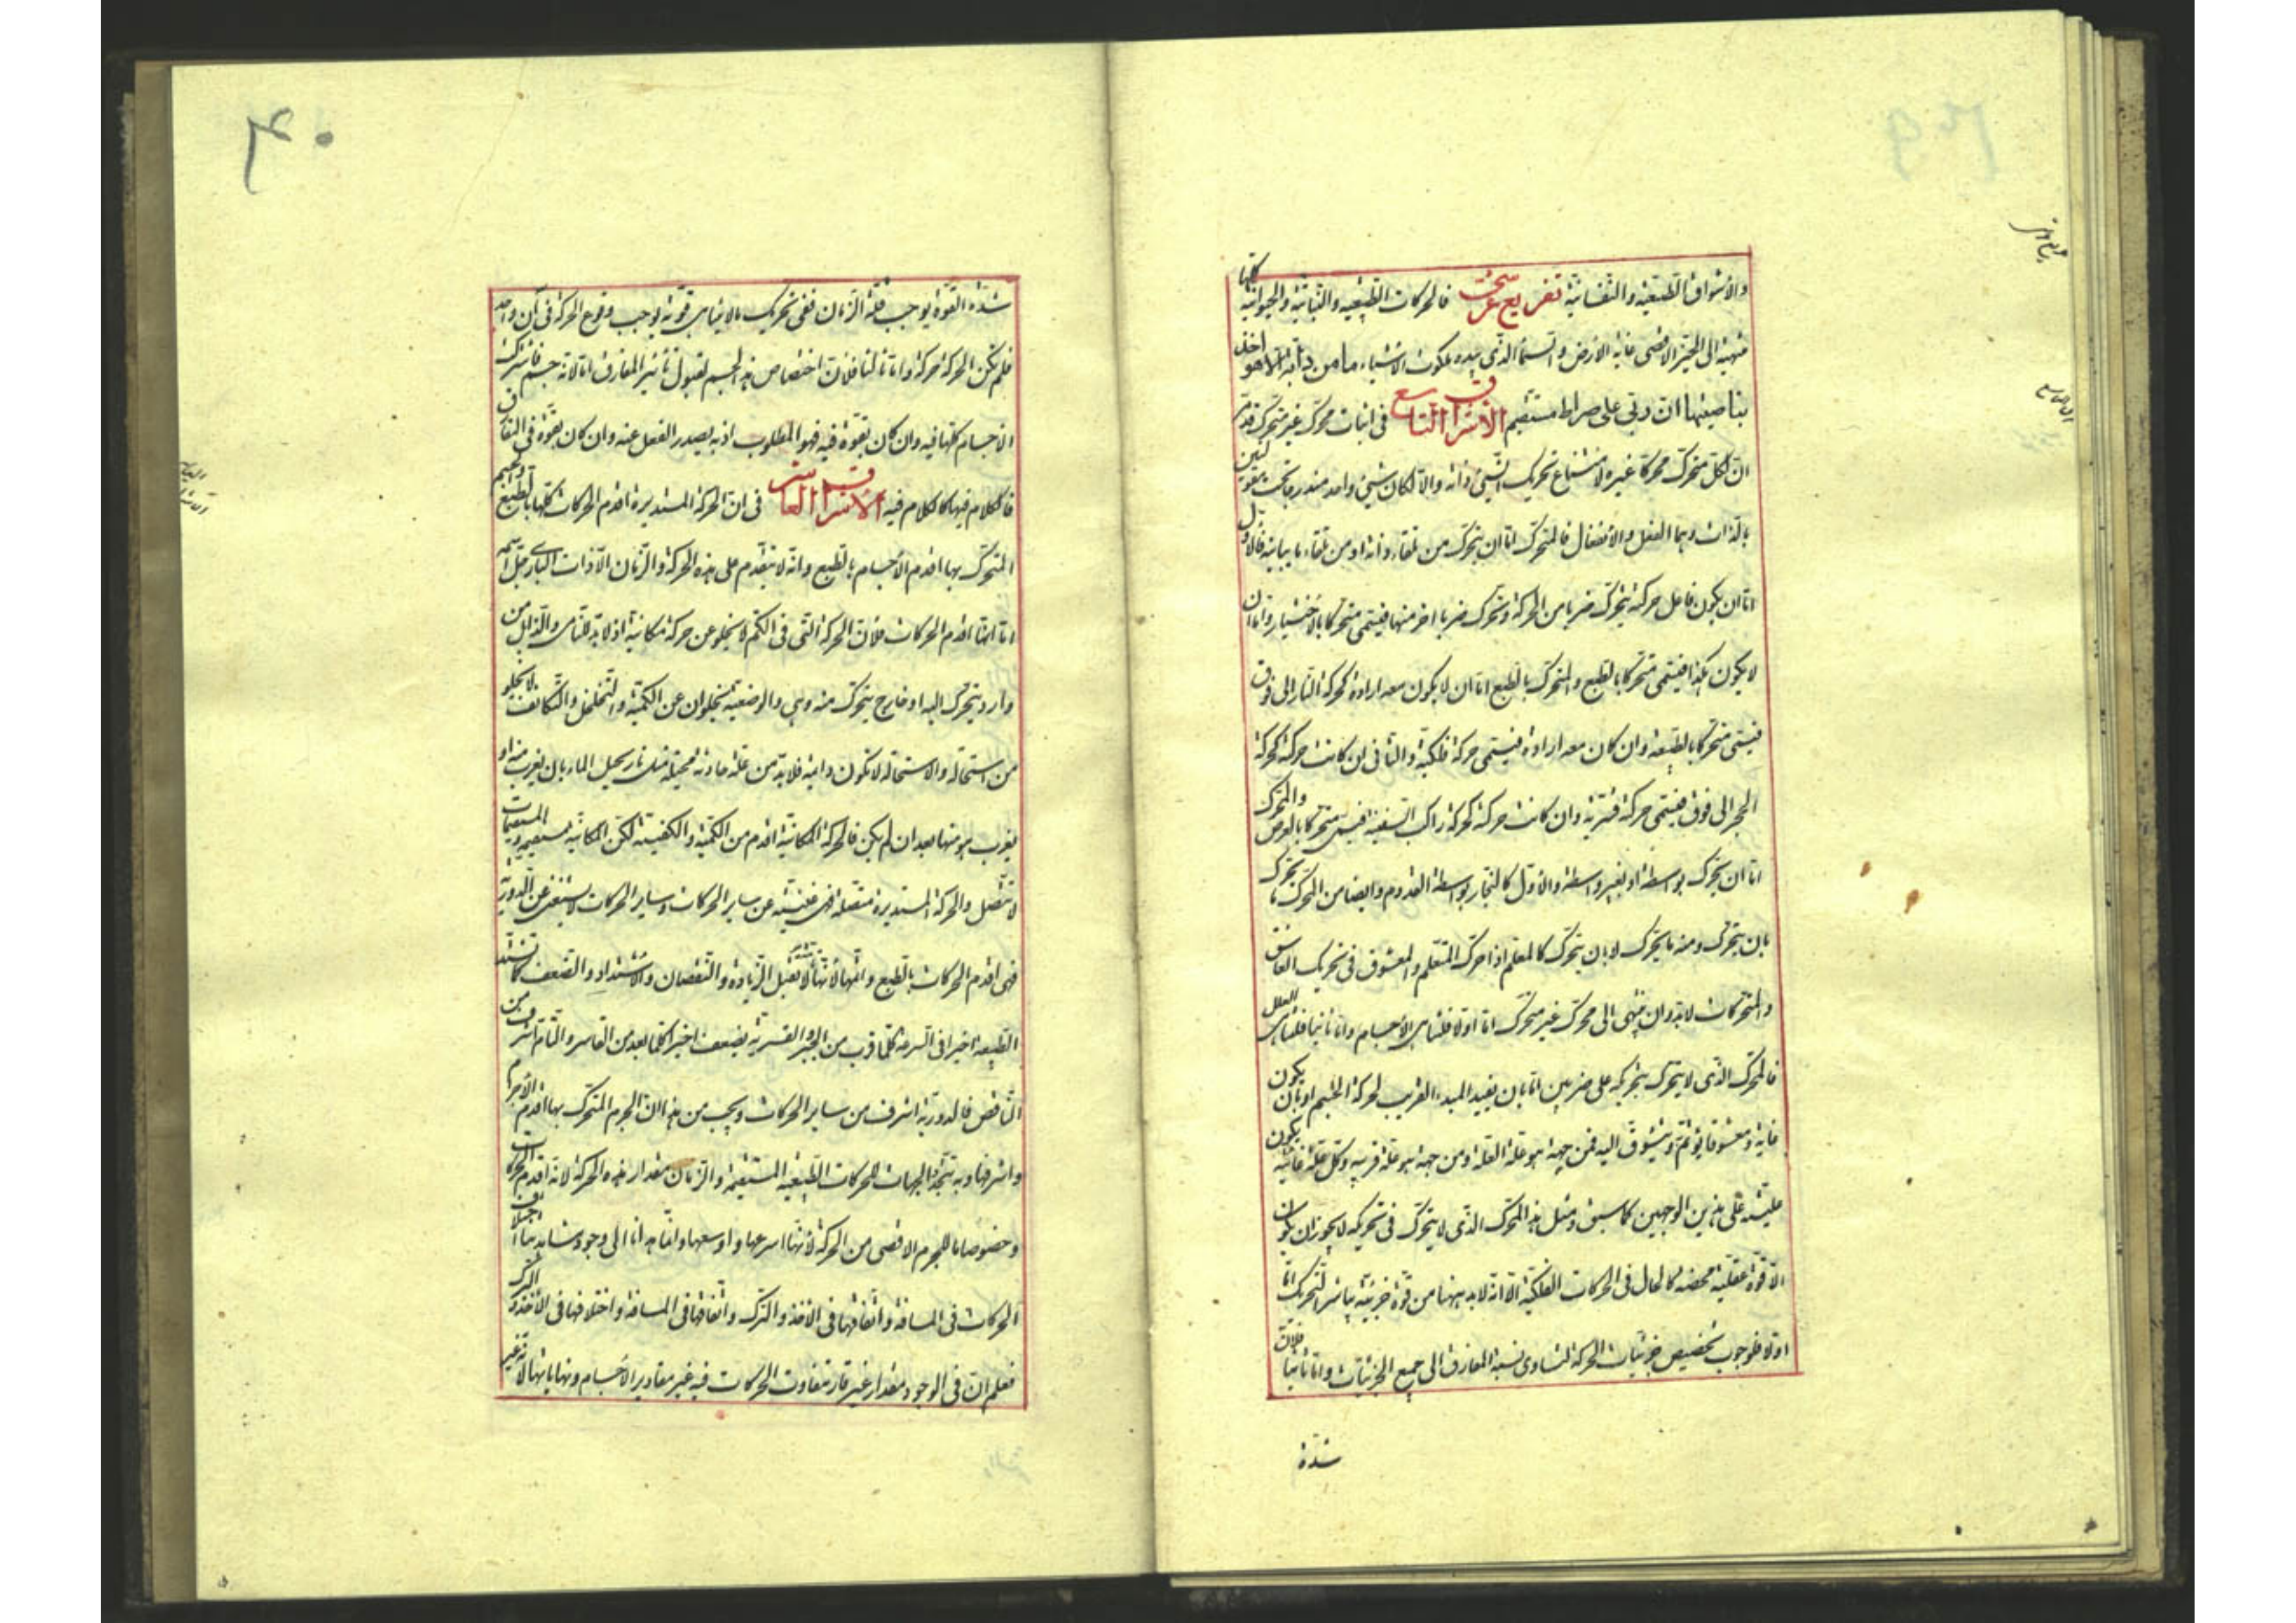 والأشواق الطبيعية والنفسانية تفريع عرشي فالحركات الطبيعية والنباتية والحيوانية كلها
منتهية إلى الخير الأقصى غاية الأرض والسماء الذي بيده ملكوت الأشياء ما من دابة إلا هو آخذ
بناصيتها ان ربي على صراط مستقيم الاشراق التاسع في اثبات محرك غير متحرك
ان لكل متحرك محركا غيره لامتناع تحريك الشيء ذاته والا لكان شيء واحد مندرجا تحت مقولتين
بالذات وهما الفعل والانفعال فالمتحرك اما ان يتحرك من تلقاء ذاته او من تلقاء ما يباينه فالاول
اما ان يكون فاعل حركته يتحرك ضربا من الحركة وتحرك ضربا اخر منها فيسمى متحركا بالاختيار واما ان
لا يكون هكذا فيسمى متحركا بالطبع والمتحرك بالطبع اما ان لا يكون معه ارادة كحركة النار الى فوق
فيسمى متحركا بالطبيعة وان كان معه ارادة فيسمى حركة فلكية والثاني ان كانت حركته كحركة
الحجر الى فوق فيسمى حركة قسرية وان كانت حركته كحركة راكب السفينة فيسمى متحركا بالعرض والمحرك
اما ان يحرك بواسطة او بغير واسطة والاول كالنجار بواسطة القدوم وايضا من المحرك ما يحرك
بان يتحرك ومنه ما يحرك لا بان يتحرك كالمعلم اذا حرك المتعلم والمعشوق في تحريك العاشق
والمتحركات لابد وان ينتهى الى محرك غير متحرك اما اولا فلتناهي الاجسام واما ثانيا فلتناهي العلل
فالمحرك الذي لا يتحرك بتحريكه على ضربين اما بان يفيد المبدء القريب لحركة الجسم او بان يكون
غاية ومعشوقا يؤتم ويتشوق اليه فمن جهة هو علة العلة ومن جهة هو علة قريبة وكل علة غائية يكون
عليته على هذين الوجهين كما سبق ومثل هذا المحرك الذي لا يتحرك في تحريكه لا يجوز ان يكون
الا قوة عقلية محضة كالحال في الحركات الفلكية الا انه لابد ههنا من قوة جزئية يباشر التحريك اما
اولا فلوجوب تخصيص جزئيات الحركة لتساوى نسبة المفارق الى جميع الجزئيات واما ثانيا فلان
شدة
۴۰
شدة القوة يوجب قلة الزمان ففي تحريك مالا يتناهى قوته يوجب وقوع الحركة في آن واحد
فلم تكن الحركة حركة واما ثالثا فلان اختصاص هذا الجسم لقبول تاثير المفارق اما لانه جسم فاشترك
الاجسام كلها فيه وان كان بقوة فيه فهو المطلوب اذ به يصدر الفعل عنه وان كان بقوة في المفارق
فالكلام فيها كالكلام فيه الاشراق العاشر في ان الحركة المستديرة اقدم الحركات كلها بالطبع والجسم
المتحرك بها اقدم الاجسام بالطبع وانه لا يتقدم على هذه الحركة والزمان الا ذات الباري جل اسمه
اما انها اقدم الحركات فلان الحركة التي في الكم لا يخلو عن حركة مكانية اذ لابد للنامي والذابل من
وارد يتحرك اليه او خارج يتحرك منه وهي والوضعية يخلوان عن الكمية والتخلخل والتكاثف لا يخلو
من استحالة والاستحالة لا تكون دايمة فلابد من علة حادثة محيلة مثل نار يحيل الماء بان يقرب منه او
يقرب هو منها بعد ان لم يكن فالحركة المكانية اقدم من الكمية والكيفية لكن المكانية مستقيمة والمستقيمات
لا تتصل والحركة المستديرة متصلة فهي غنية عن ساير الحركات وساير الحركات لا يستغنى عن الدورية
فهي اقدم الحركات بالطبع واتمها لانها لا تقبل الزيادة والنقصان والاشتداد والضعف كما تشتد
الطبيعة اخيرا في السرعة كلما قرب من الحيز والقسرية يضعف اخيرا كلما بعد من القاسر والتام اشرف من
الناقص فالدورية اشرف من ساير الحركات ويجب من هذا ان الجرم المتحرك بها اقدم الاجرام
واشرفها وبه تتحدد الجهات للحركات الطبيعية المستقيمة والزمان مقدار هذه الحركة لانه اقدم الحركات
وخصوصا ما للجرم الاقصى من الحركة لانها اسرعها واوسعها واما هدانا الى وجوده مشاهدتنا اختلاف
الحركات في المسافة واتفاقها في الاخذ والترك واتفاقها في المسافة واختلافها في الاخذ والترك
فعلم ان في الوجود مقدار غير قار متفاوت الحركات فيه غير مقادير الاجسام ونهاياتها لانه غير